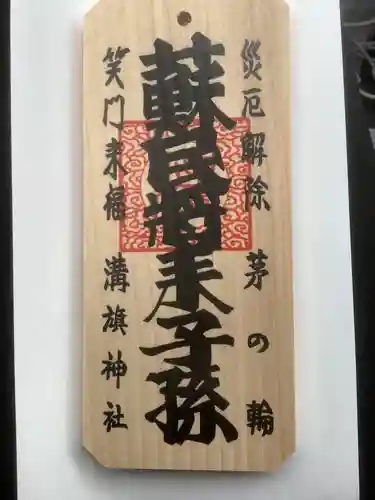 災厄解除茅の輪
蘇民将来子孫
笑門来福溝旗神社